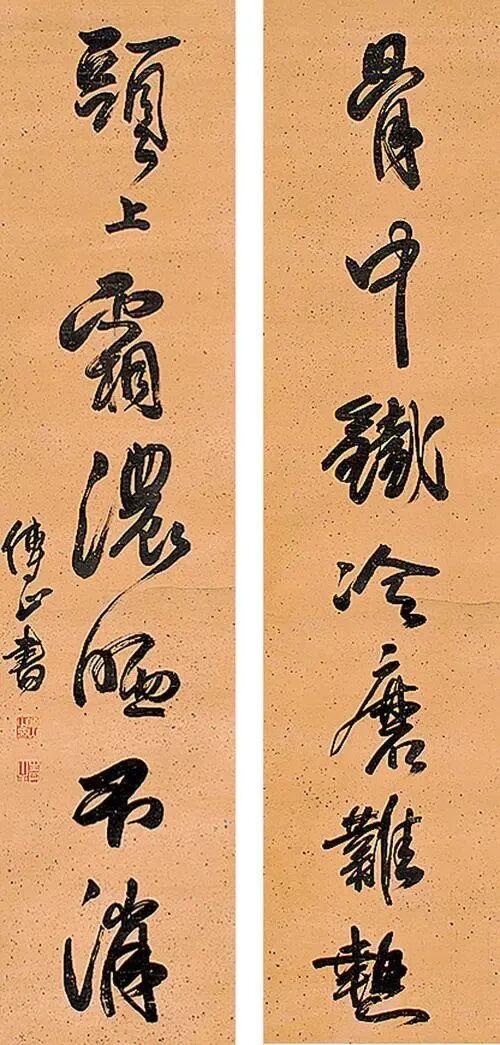 骨中鐵冷磨難熱
頭上霜濃晒不消
傅山書